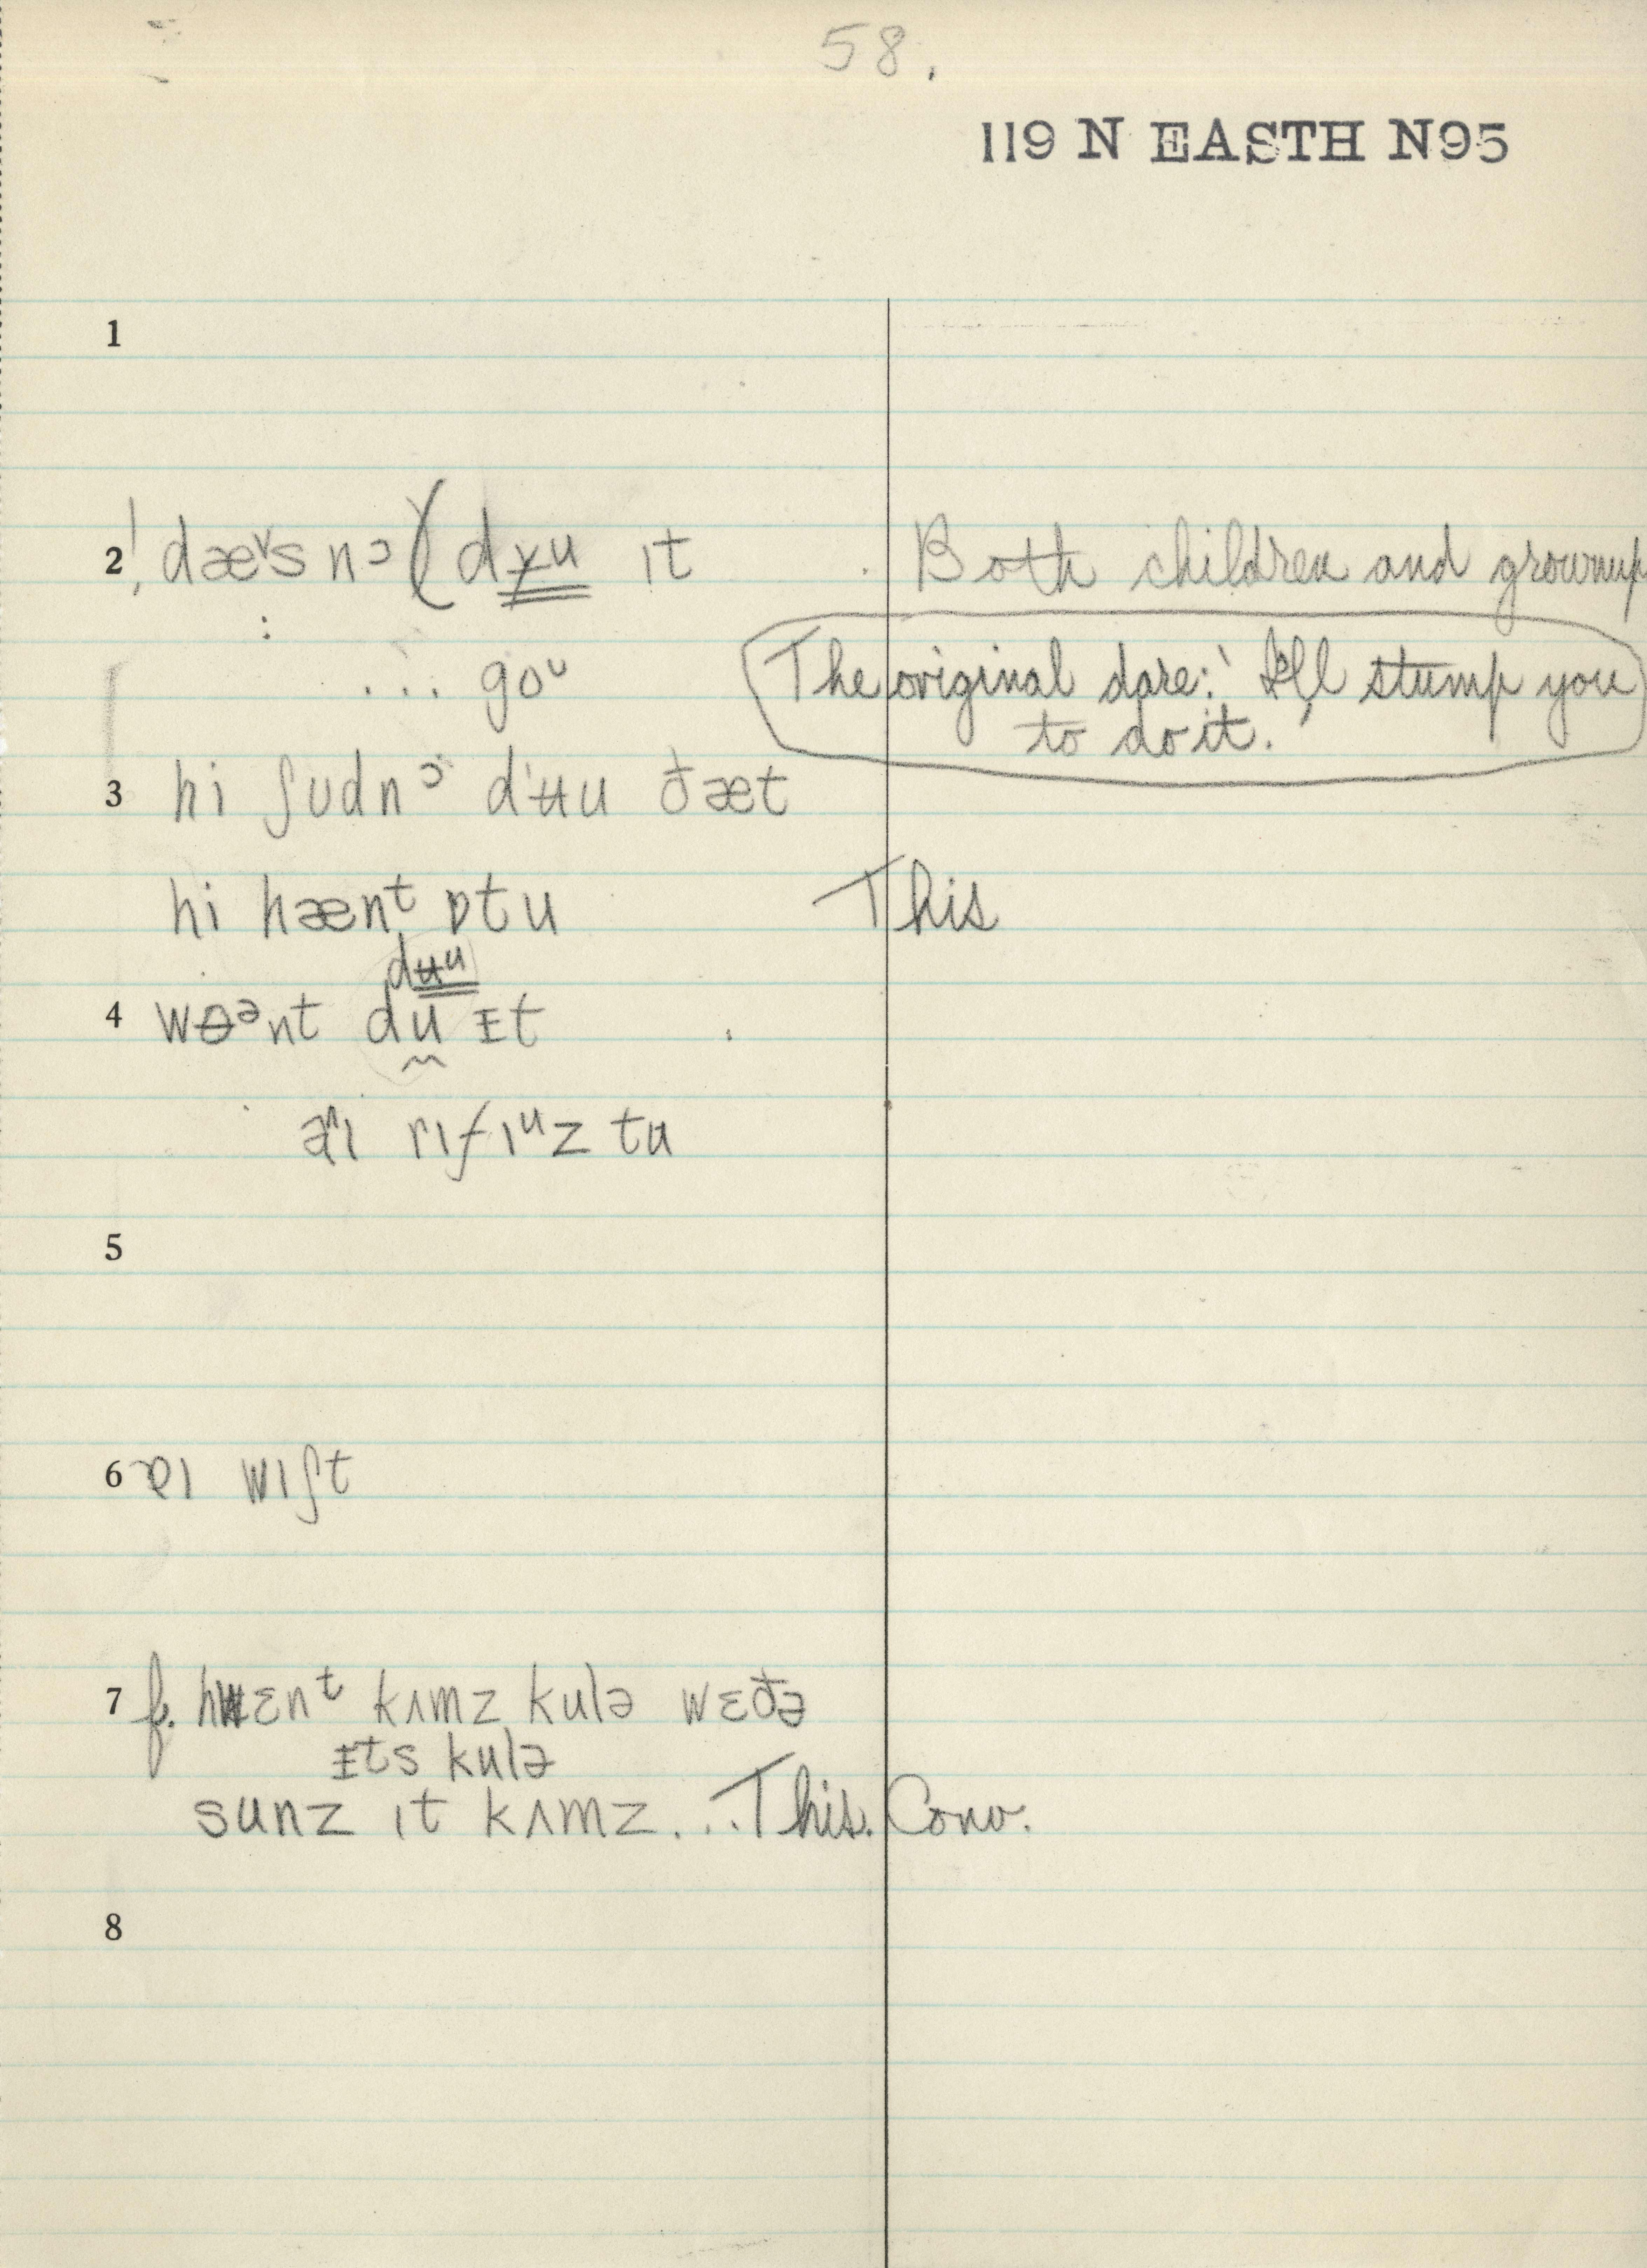 58.
119 N EASTH N95
1
2 ! dæᵛs nɔ ( dɤu ɪt Both children and grownup
: ... goᶸ The original dare: 'I'll stump you
to do it.'
3 hi ʃʊdnᵓ dʉu ðæt
hi hænᵗ ɒtu This
dʉᵘ
4 wɵᵊnt du ɪt
rɪfɪᵘz tu
5
6 ɐɪ wɪʃt
7 f. hwɛnᵗ kʌmz kulə wɛðə
ɪts kulə
sunz ɪt kʌmz... This. Conv.
8